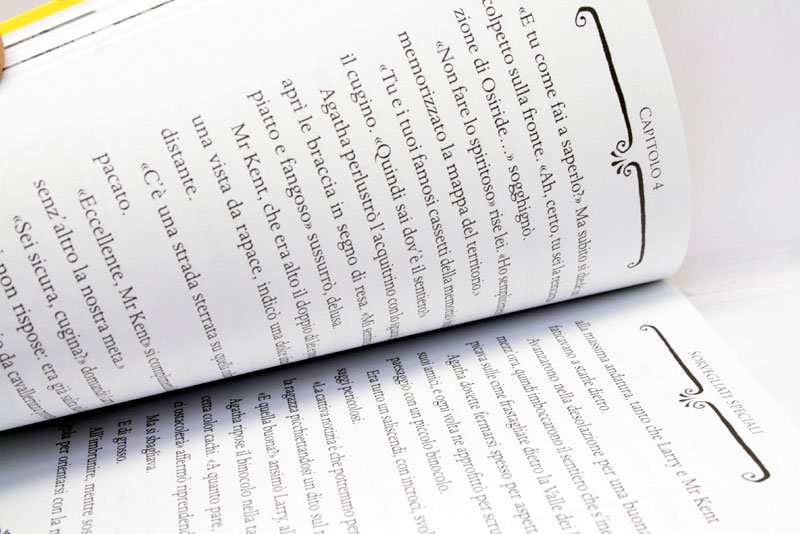 CAPITOLO 4
«E tu come fai a saperlo?» Ma subito si
colpetto sulla fronte. «Ah, certo, tu sei la
zione di Osiride…» sogghignò.
«Non fare lo spiritoso» rise lei. «Ho
memorizzato la mappa del territorio.»
«Tu e i tuoi famosi cassetti della memoria!»
il cugino. «Quindi sai dov'è il sentiero?»
Agatha perlustrò l'acquitrino con lo
aprì le braccia in segno di resa. «Mi
piatto e fangoso» sussurrò, delusa.
Mr Kent, che era alto il doppio di
una vista da rapace, indicò una
distante.
«C'è una strada sterrata su
pacato.
«Eccellente, Mr Kent» si
senz'altro la nostra meta.»
«Sei sicura, cugina?»
non rispose: era già
da
SORVEGLIATI SPECIALI
alla massima andatura, tanto che Larry e Mr Kent
faticavano a starle dietro.
Avanzarono nella desolazione per una buona
mezz'ora, quindi imboccarono il sentiero che s'
picavo sulle cime frastagliate dietro la Valle dei
Agatha dovette fermarsi spesso per
suoi amici, e ogni volta ne approfittò per
paesaggio con un piccolo binocolo.
Era tutto un saliscendi, con incroci,
saggi pericolosi.
«La cattiva notizia è che potremmo
la ragazza picchiettandosi un dito sul
«E quella buona?» ansimò Larry,
Agatha ripose il binocolo nella
certa color cachi. «A quanto pare,
ci ostacolerà» affermò
Ma si sbagliava.
E di grosso.
All'imbrunire, mentre
per orientarsi con la